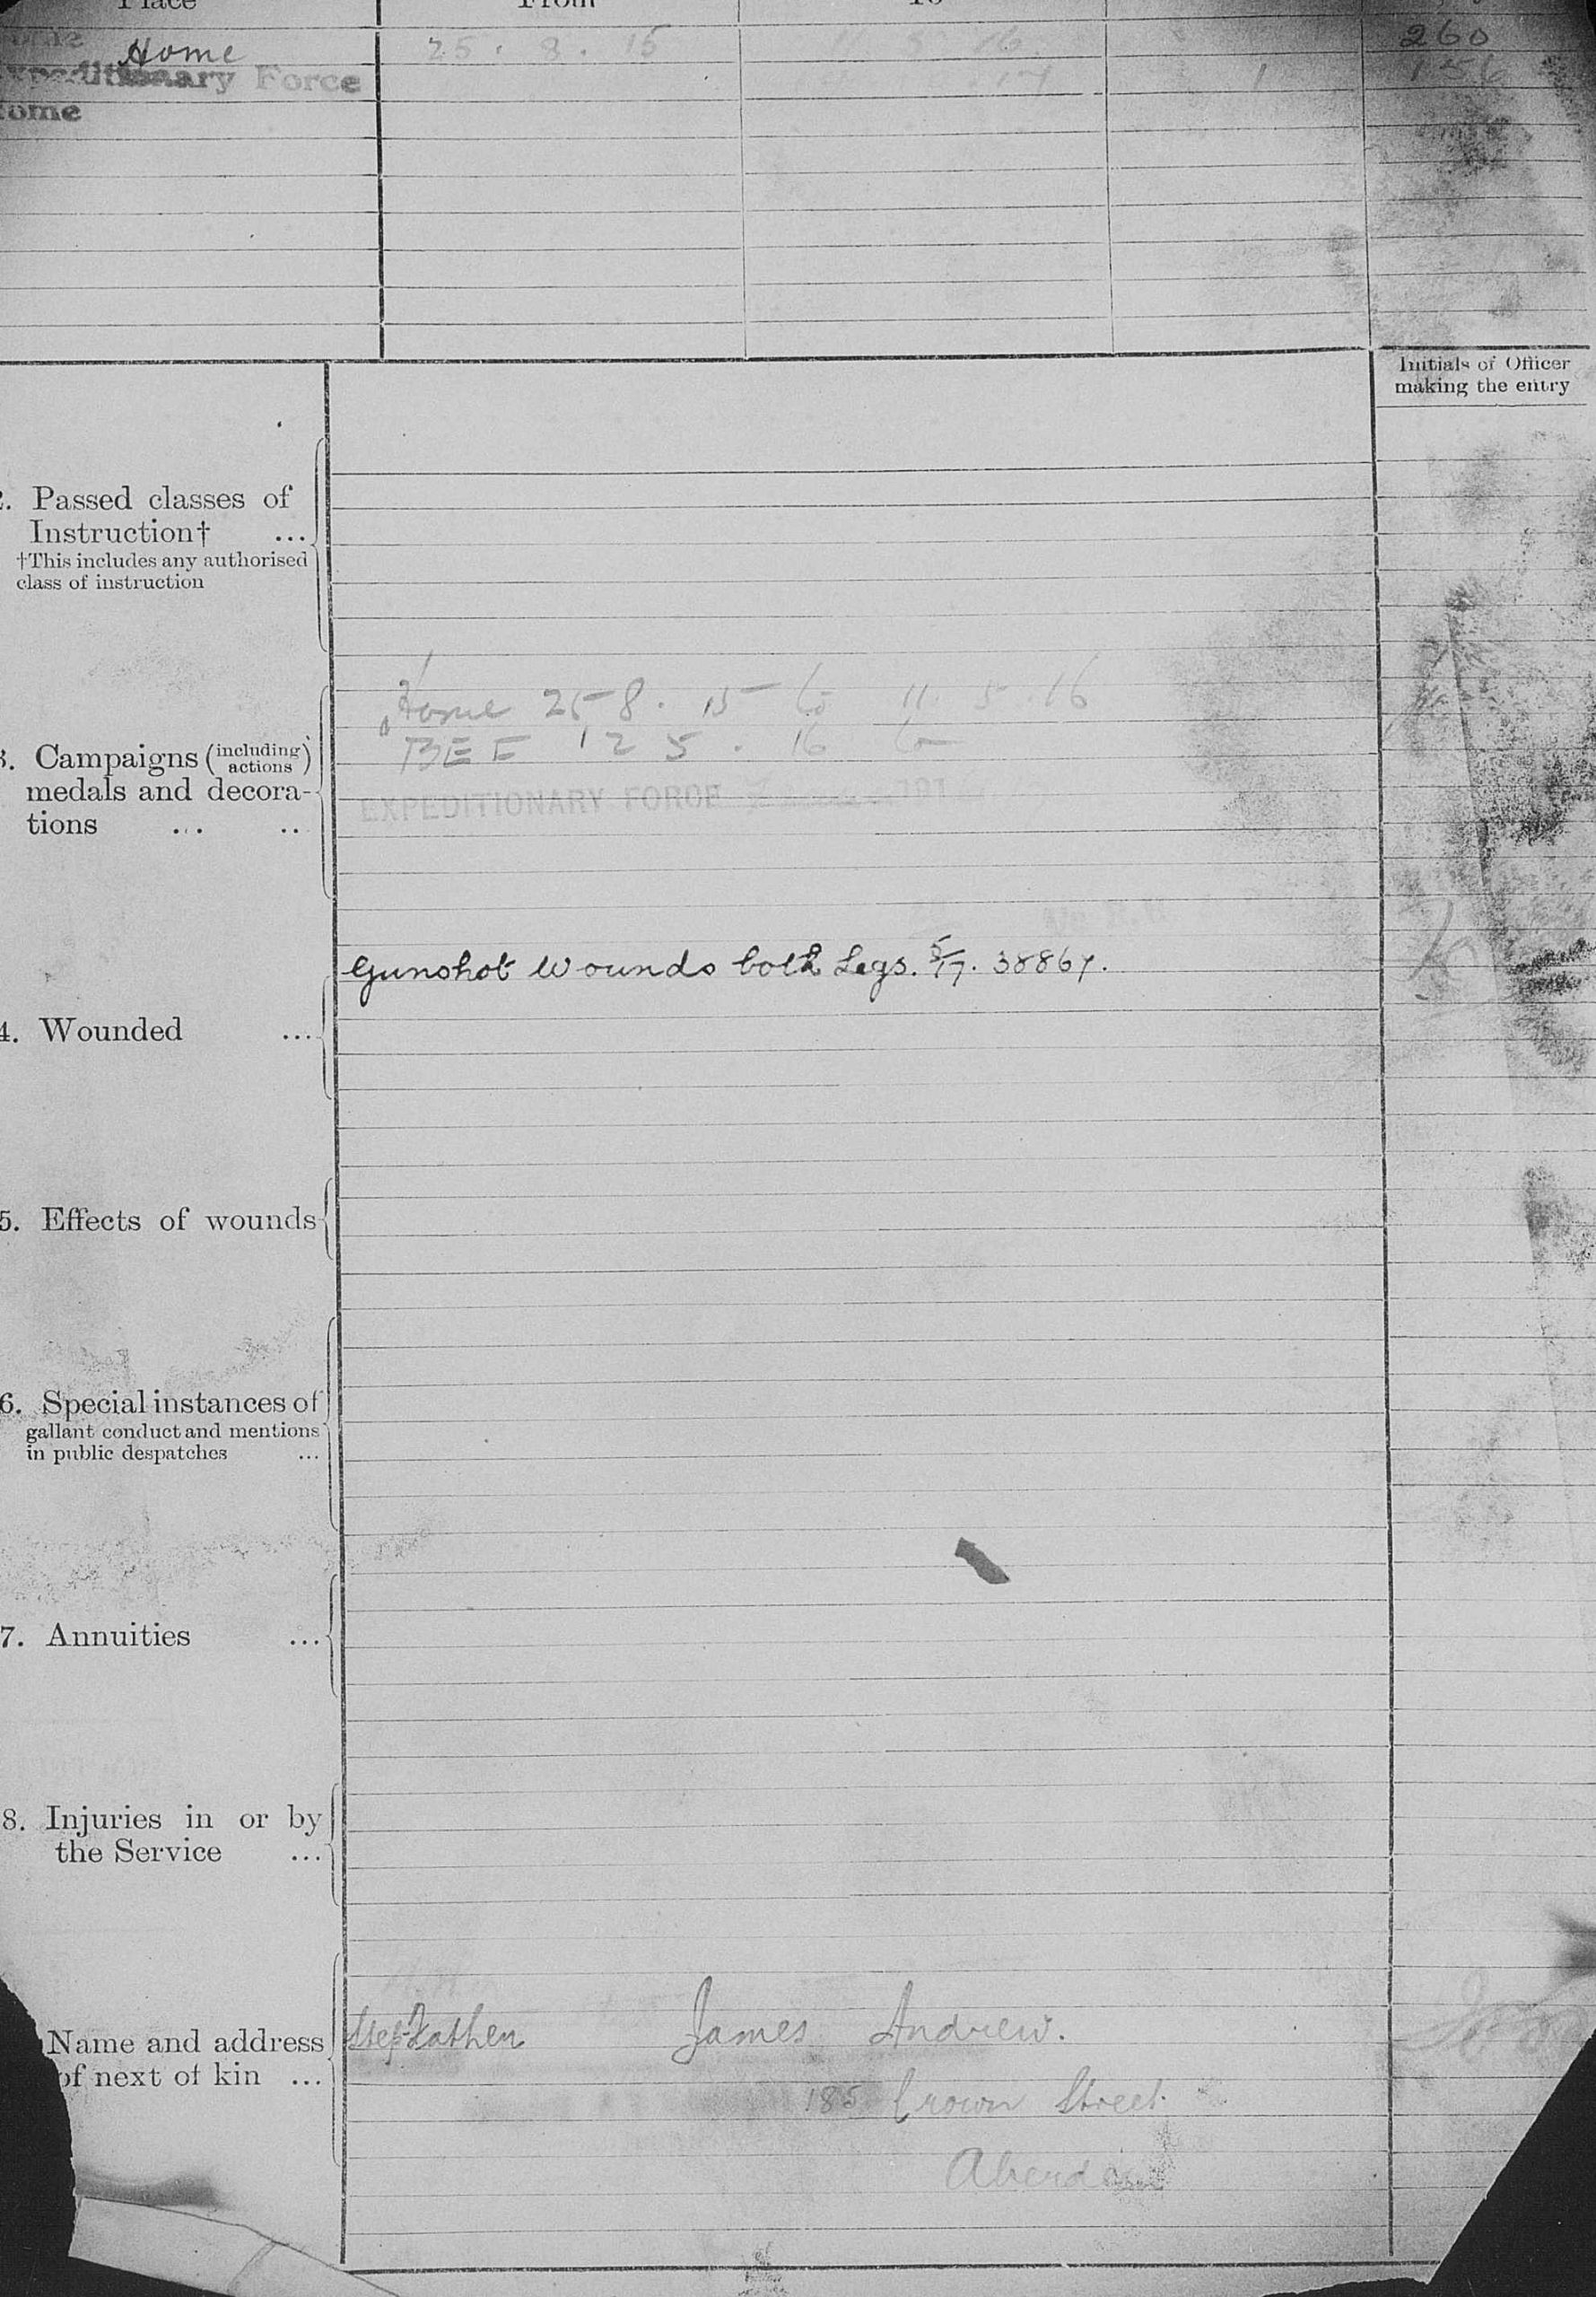 Place From To
Home 25 . 8 . 15 260
Expeditionary Force
Home
Initials of Officer
making the entry
2. Passed classes of
Instruction† ...
†This includes any authorised
class of instruction
Home 25 8 . 15 to 11 5 16
BEF 12 5 . 16 to
3. Campaigns (including actions)
medals and decora-
tions ... ..
EXPEDITIONARY FORCE 191
Gunshot Wounds both Legs. 5/17. 38867.
4. Wounded ...
5. Effects of wounds
6. Special instances of
gallant conduct and mentions
in public despatches ...
7. Annuities ...
8. Injuries in or by
the Service ...
Name and address Stepfather James Andrew.
of next of kin ...
185 Crown Street
Aberdeen